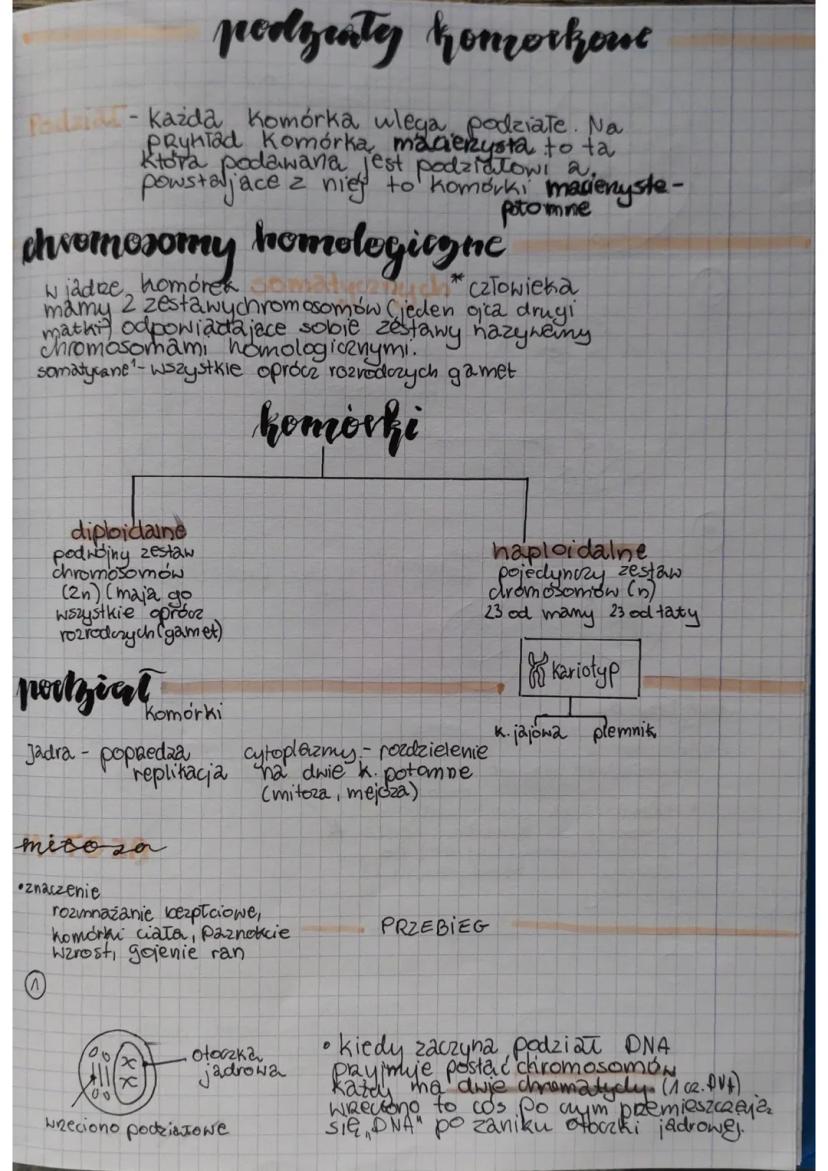 podziały komórkowe
Podział - każda komórka ulega podziałe. Na
przykład komórka macierzysta to ta
która podawana jest podziałowi a,
powstające z niej to komórki macierzyste-
potomne
chromosomy homologiczne
w jądrze komórek somatycznych* człowieka
mamy 2 zestawychromosomów (jeden ojca drugi
matki) odpowiadające sobie zestawy nazywamy
chromosomami homologicznymi.
somatyczne* - wszystkie oprócz rozrodczych gamet
komórki
diploidalne
podwójny zestaw
chromosomów
(2n) (mają go
wszystkie oprócz
rozrodczych (gamet)
haploidalne
pojedynczy zestaw
chromosomów (n)
23 od mamy 23 od taty
kariotyp
k. jajowa plemnik
podział
komórki
Jądra - poprzedza
replikacja
cytoplazmy - rozdzielenie
na dwie k. potomne
(mitoza, mejoza)
mitoza
• znaczenie
rozmnażanie bezpłciowe,
komórki ciała, paznokcie
wzrost, gojenie ran
PRZEBIEG
1
otoczka
jądrowa
wrzeciono podziałowe
• kiedy zaczyna podział DNA
przyjmuje postać chromosomów
każdy ma dwie chromatydy (1 cz. DNA)
wrzeciono to coś po czym przemieszczają
się „DNA" po zaniku otoczki jądrowej.